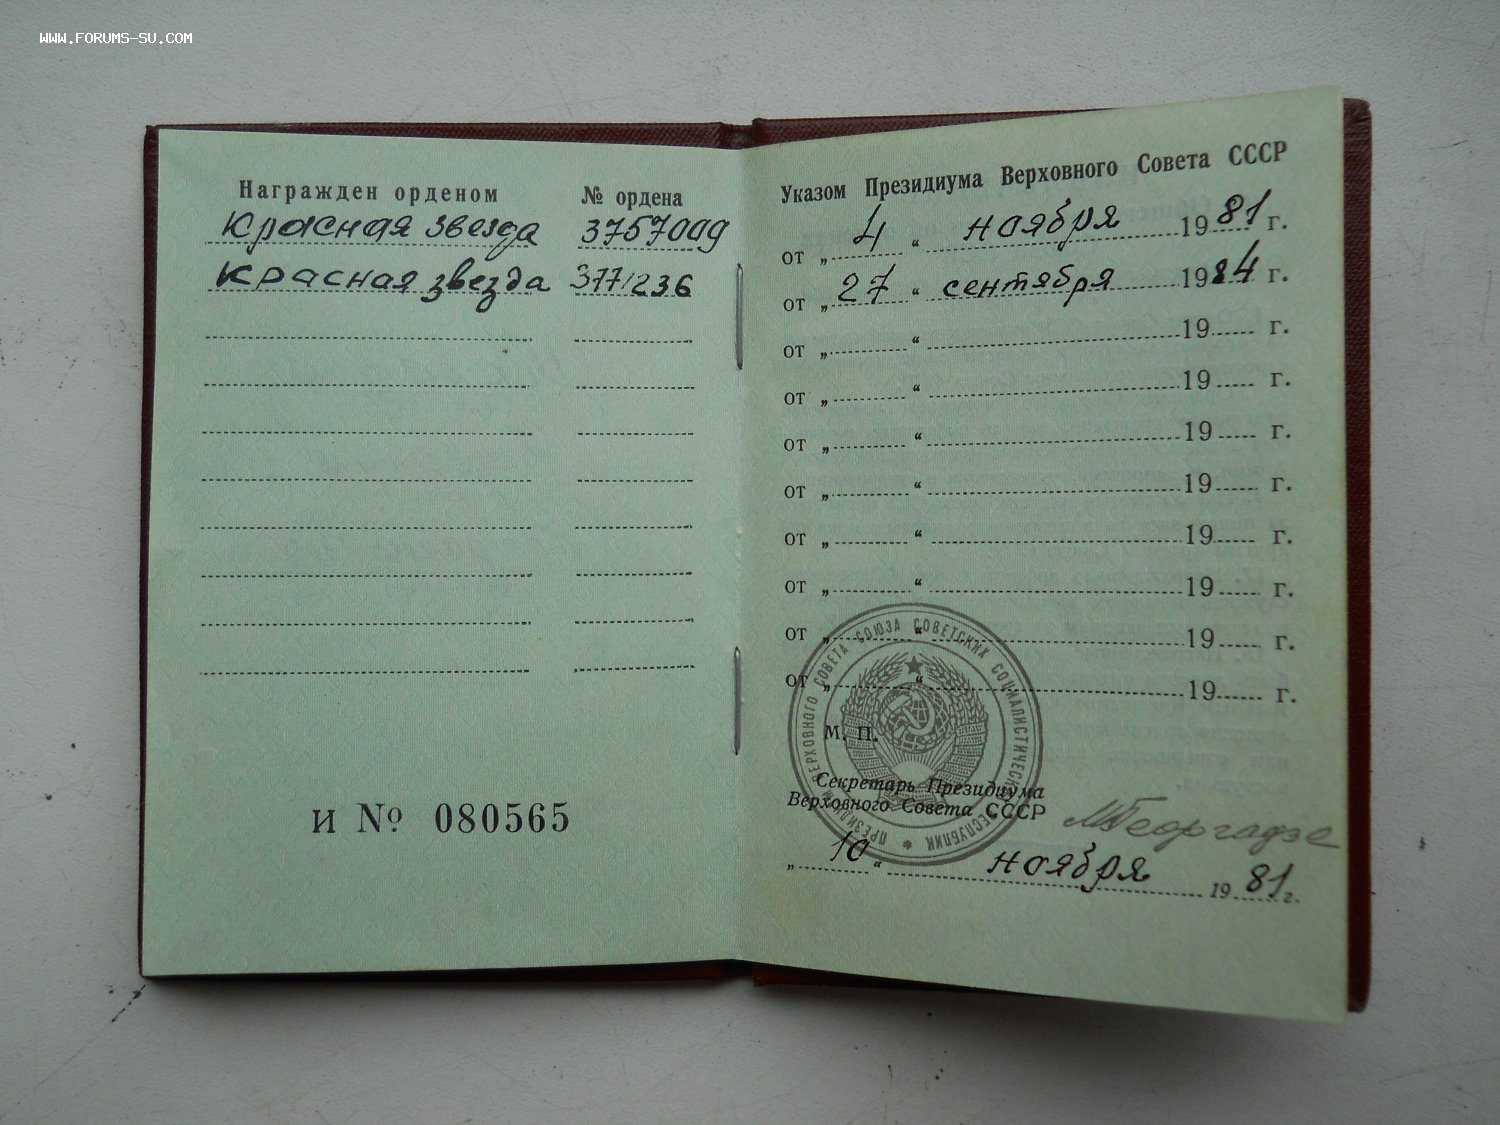 WWW.FORUMS-SU.COM
Награжден орденом № ордена
Красная звезда 3757009
Красная звезда 3771236
и № 080565
Указом Президиума Верховного Совета СССР
от „ 4 “ ноября 19 81 г.
от „ 27 “ сентября 19 84 г.
от „ “ 19 г.
от „ “ 19 г.
от „ “ 19 г.
от „ “ 19 г.
от „ “ 19 г.
от „ “ 19 г.
от „ “ 19 г.
от „ “ 19 г.
ПРЕЗИДИУМ ВЕРХОВНОГО СОВЕТА СОЮЗА СОВЕТСКИХ СОЦИАЛИСТИЧЕСКИХ РЕСПУБЛИК
М. П.
Секретарь Президиума
Верховного Совета СССР
МГеоргадзе
„ 10 “ ноября 19 81 г.